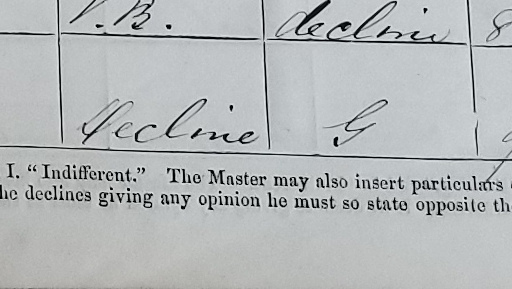 V.B. decline 8
decline G
I. "Indifferent." The Master may also insert particulars
he declines giving any opinion he must so state opposite th